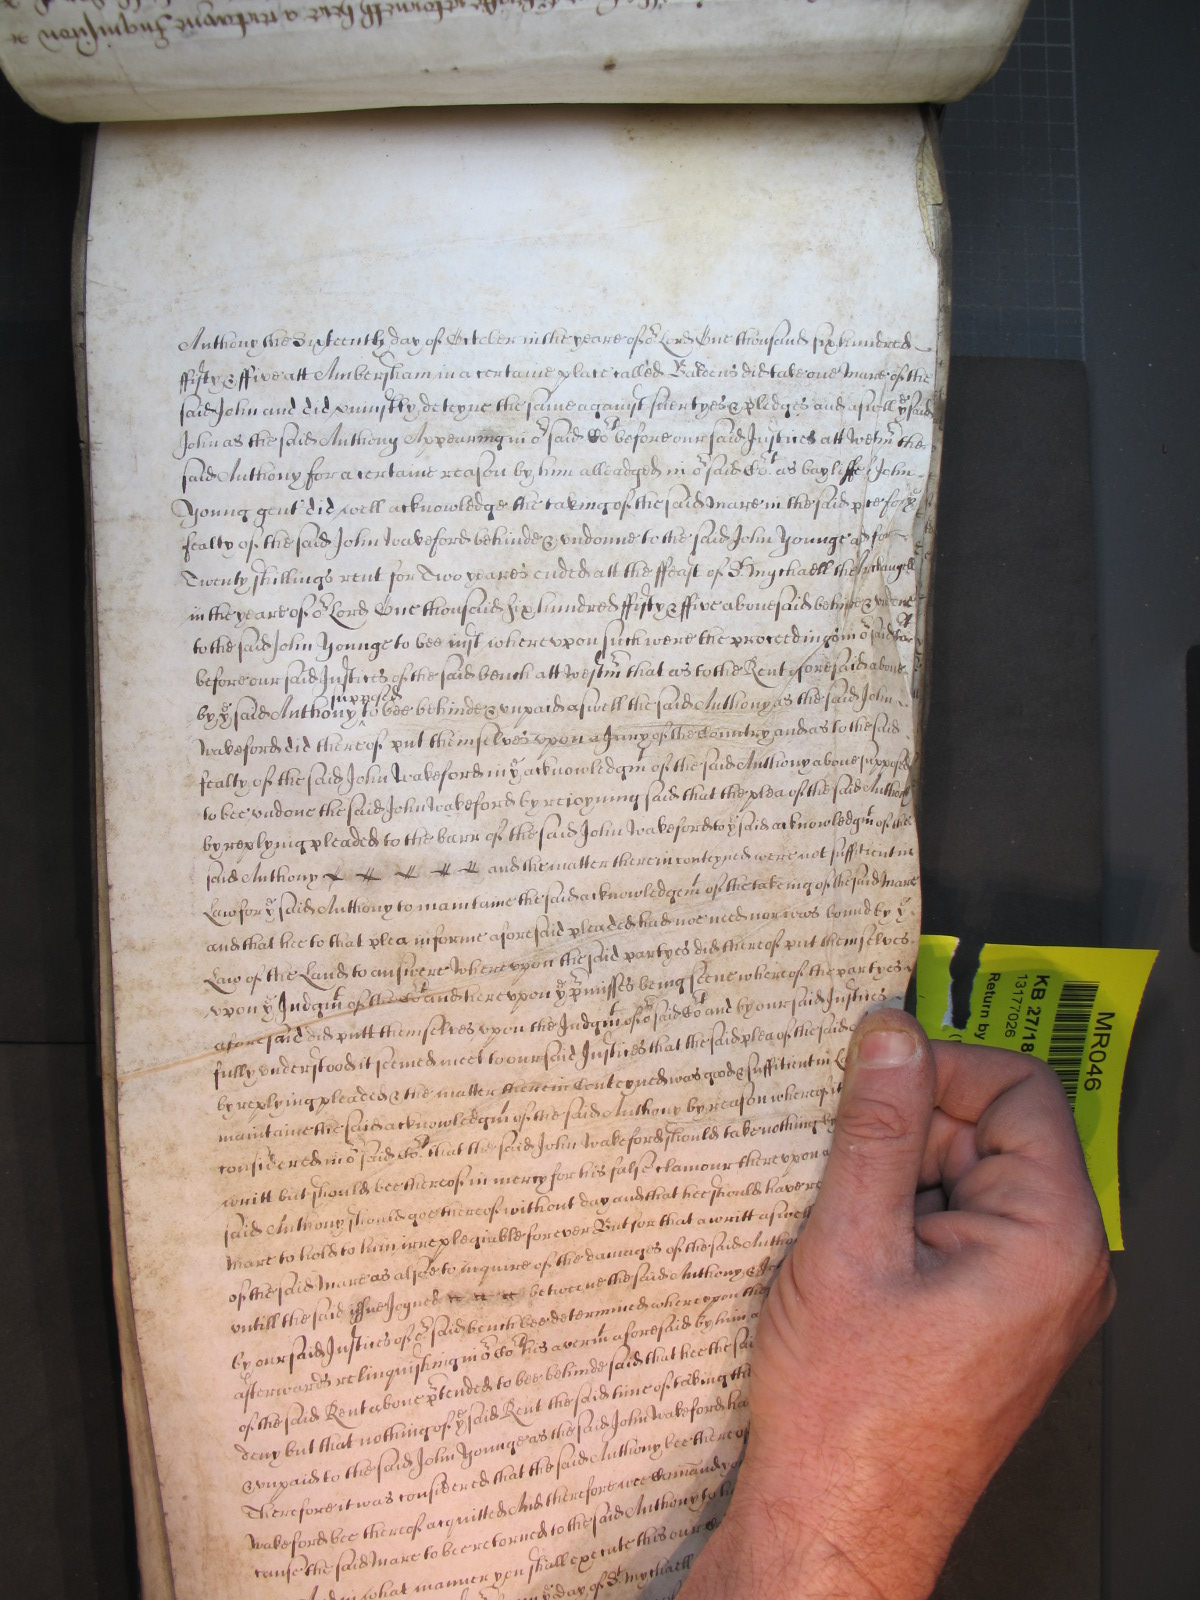 Anthony the Sixteenth day of October in the yeare of oʳ Lord One thousand six hundred
ffifty & ffive att Ambersham in a certaine place called Bakeens did take one Mare of the
said John and did uniustly deteyne the same against suertyes & pledges and aswell yᵉ said
John as the said Anthony Appearing in oʳ said Coʳᵗ before our said Justices att Westmʳ the
said Anthony for a certaine reason by him alleadged in oʳ said Coʳᵗ as bayliffe John
Young gent did well acknowledge the taking of the said Mare in the said place for yᵉ
fealty of the said John Wakeford behinde & undonne to the said John Younge and for
Twenty shillings rent for Two yeares ended att the ffeast of Sᵗ Mychaell the Archangell
in the yeare of oʳ Lord One thousand six hundred ffifty & ffive abovesaid behinde &
to the said John Younge to bee iust whereupon such were the proceedings in oʳ said Coʳᵗ
before our said Justices of the said bench att Westmʳ that as to the Rent aforesaid above
supposed
by yᵉ said Anthony to bee behinde & unpaid aswell the said Anthony as the said John
Wakeford did thereof put themselves upon a Jury of the Country and as to the said
fealty of the said John Wakeford in yᵉ acknowledgmᵗ of the said Anthony above supposed
to bee undone the said John Wakeford by reioyning said that the plea of the said Anthony
by replying pleaded to the barr of the said John Wakeford to yᵉ said acknowledgmᵗ of the
said Anthony and the matter therein conteyned were not suffitient in
Law for yᵉ said Anthony to maintaine the said acknowledgemᵗ of the takeing of the said Mare
and that hee to that plea in forme aforesaid pleaded had noe need nor was bound by yᵉ
Law of the Land to answere Whereupon the said partyes did thereof put themselves
upon yᵉ Judgmᵗ of the Coʳᵗ and hereupon yᵉ pᵉmisses being seene whereof the partyes
aforesaid did putt themselves upon the Judgmᵗ of oʳ said Coʳᵗ and by our said Justices
fully understood it seemed meet to our said Justices that the said plea of the said
by replying pleaded & the matter therein Conteyned was good & suffitient in
maintaine the said acknowledgmᵗ of the said Anthony by reason whereof it
considered in oʳ said Coʳᵗ that the said John Wakeford should take nothing by
writt but should bee thereof in mercy for his false clamour thereupon
said Anthony should goe thereof without day and that hee should have
Mare to hold to him irreplegiable for ever But for that a writt aswell
of the said Mare as alsoe to inquire of the damages of the said
untill the said issue Joyned betweene the said Anthony &
by our said Justices of oʳ said bench bee determined whereupon the
afterwards relinquishing in oʳ Coʳᵗ his averrmᵗ aforesaid by him
of the said Rent above pᵉtended to bee behinde said that hee the
deny but that nothing of yᵉ said Rent the said time of taking the
unpaid to the said John Younge as the said John Wakeford
Therefore it was considered that the said Anthony bee thereof
Wakeford bee thereof acquitted And therefore wee Comand
cause the said Mare to bee retorned to the said Anthony to
And in what manner you shall execute this our
day of Sᵗ Mychaell
MR046
KB 27/18
13177026
Return by